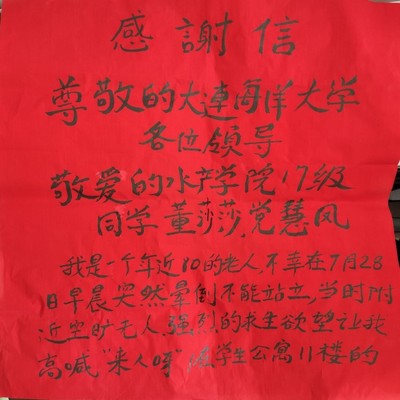 感謝信
尊敬的大連海洋大学
各位领导
敬爱的水产学院17级
同学董莎莎,党慧凤
我是一个年近80的老人,不幸在7月28
日早晨突然晕倒不能站立,当时附
近空旷无人,强烈的求生欲望让我
高喊"来人呀"住学生公寓11楼的